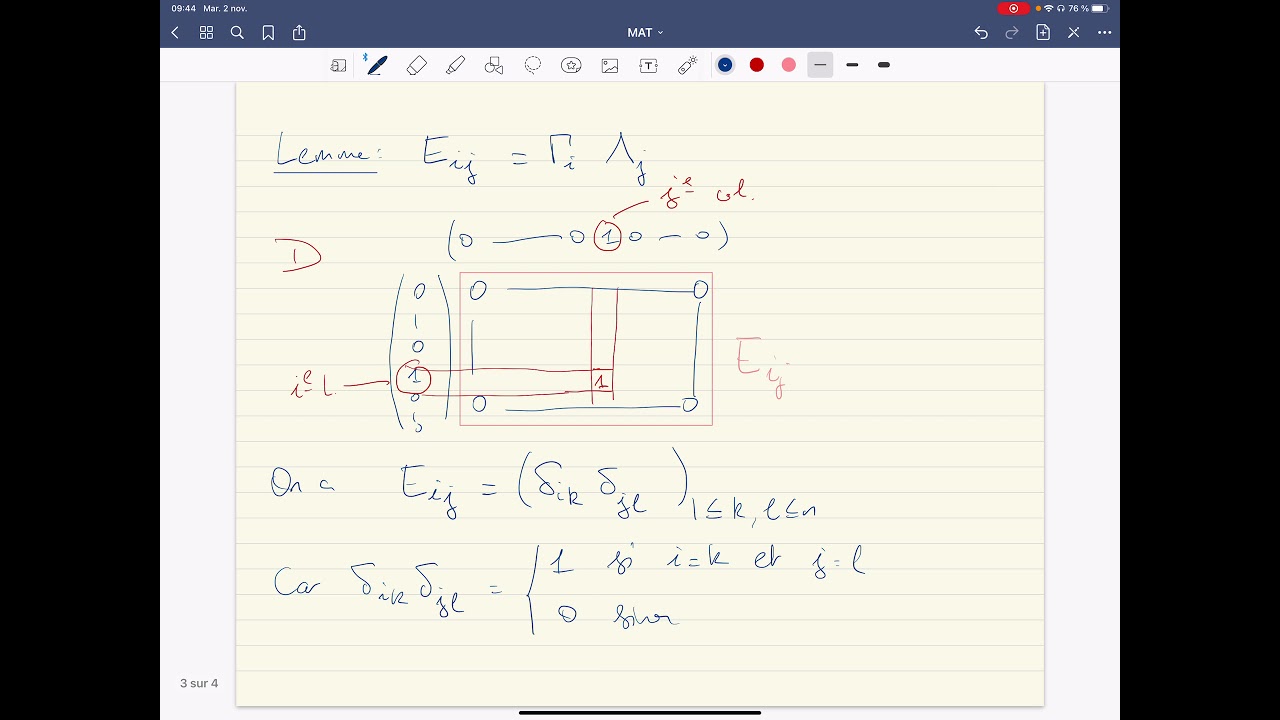 09:44 Mar. 2 nov. 76 %
MAT
Lemme: E_ij = Γ_i Λ_j
j^e col.
(0 — 0 1 0 — 0)
D
0
|
0
1
0
0 — 0
1
0 — 0
i^e l.
E_ij
On a E_ij = (δ_ik δ_jl)_1≤k,l≤n
Car δ_ik δ_jl = { 1 si i=k et j=l
0 sinon
3 sur 4